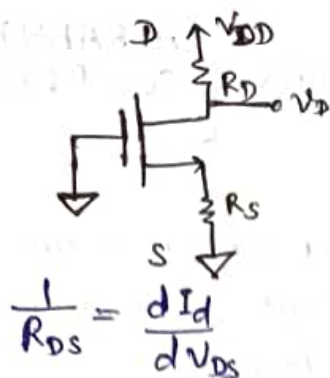 D V_DD
R_D
V_D
R_S
S
1/R_DS = dI_d/dV_DS